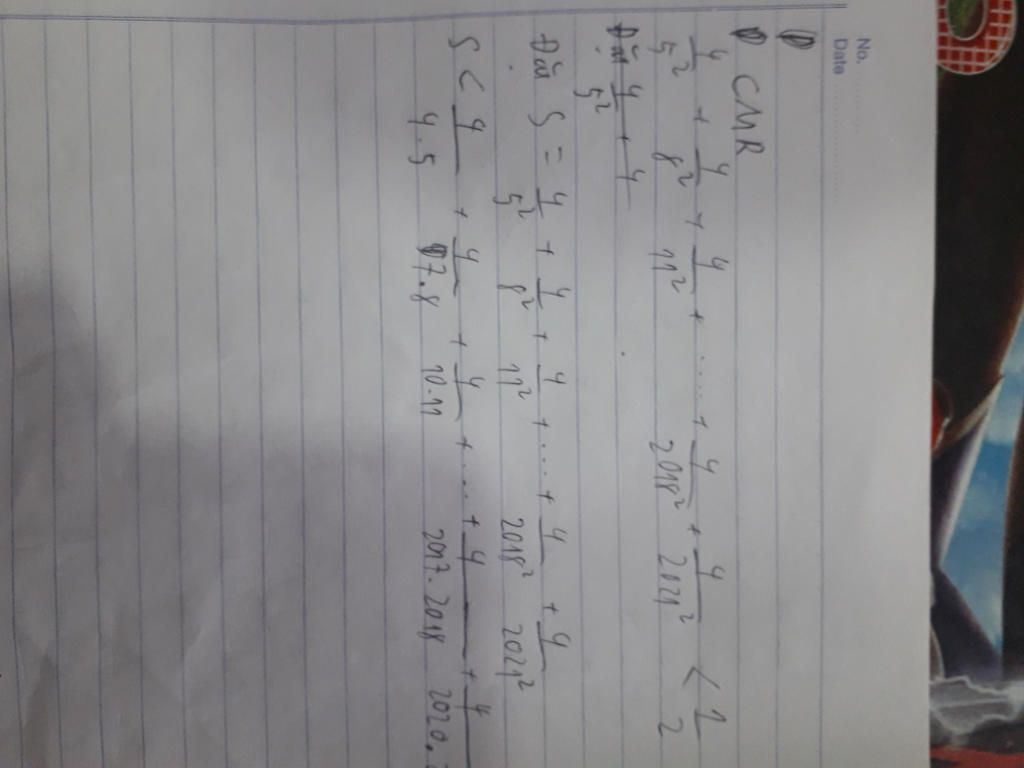 No. ..........
Date ..............
CMR
4/5² + 4/8² + 4/11² + ..... + 4/2018² + 4/2021² < 1/2
Đặt 4/5² + 4
Đặt S = 4/5² + 4/8² + 4/11² + .... + 4/2018² + 4/2021²
S < 4/4.5 + 4/7.8 + 4/10.11 + .... + 4/2017.2018 + 4/2020.